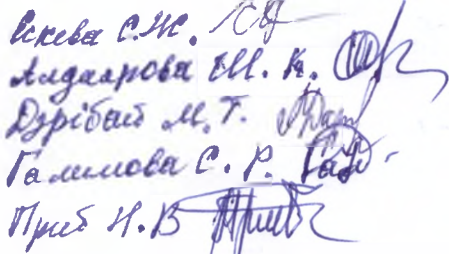 Искева С.Ж.
Алдаярова Ш. К.
Дәрібай М. Т.
Галимова С. Р.
Приб Н. В